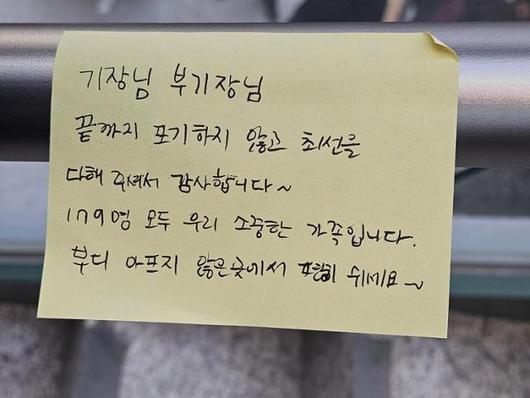 기장님 부기장님
끝까지 포기하지 않고 최선을
다해 주셔서 감사합니다~
179명 모두 우리 소중한 가족입니다.
부디 아프지 않은 곳에서 편히 쉬세요~